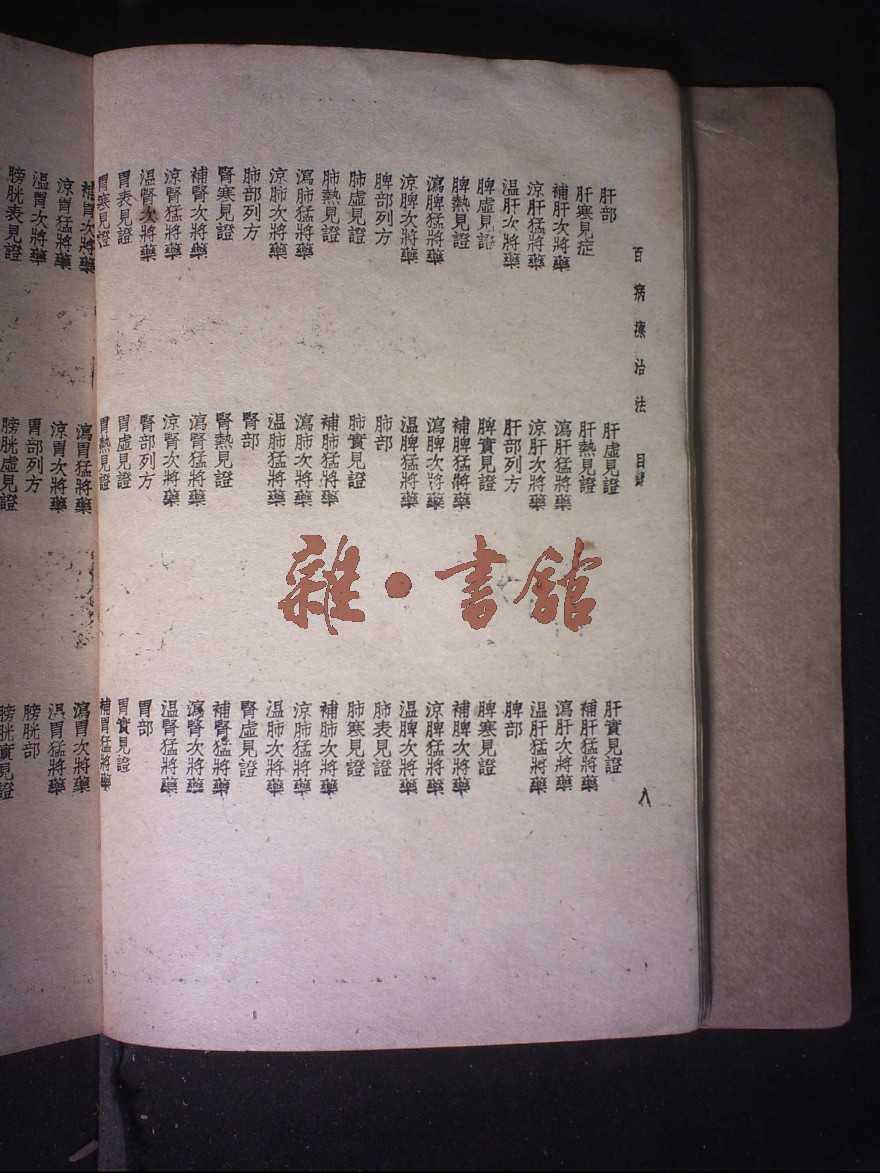 百病療治法 目錄 八
肝部 肝虛見證 肝實見證
肝寒見症 肝熱見證 補肝猛將藥
補肝次將藥 瀉肝猛將藥 瀉肝次將藥
涼肝猛將藥 涼肝次將藥 温肝猛將藥
温肝次將藥 肝部列方 脾部
脾虛見證 脾實見證 脾寒見證
脾熱見證 補脾猛將藥 補脾次將藥
瀉脾猛將藥 瀉脾次將藥 涼脾猛將藥
涼脾次將藥 温脾猛將藥 温脾次將藥
脾部列方 肺部 肺表見證
肺虛見證 肺實見證 肺寒見證
肺熱見證 補肺猛將藥 補肺次將藥
瀉肺猛將藥 瀉肺次將藥 涼肺猛將藥
涼肺次將藥 温肺猛將藥 温肺次將藥
肺部列方 腎部 腎虛見證
腎寒見證 腎熱見證 補腎猛將藥
補腎次將藥 瀉腎猛將藥 瀉腎次將藥
涼腎猛將藥 涼腎次將藥 温腎猛將藥
温腎次將藥 腎部列方 胃部
胃表見證 胃虛見證 胃實見證
胃寒見證 胃熱見證 補胃猛將藥
補胃次將藥 瀉胃猛將藥 瀉胃次將藥
涼胃猛將藥 涼胃次將藥 温胃猛將藥
温胃次將藥 胃部列方 膀胱部
膀胱表見證 膀胱虛見證 膀胱實見證
雜·書館